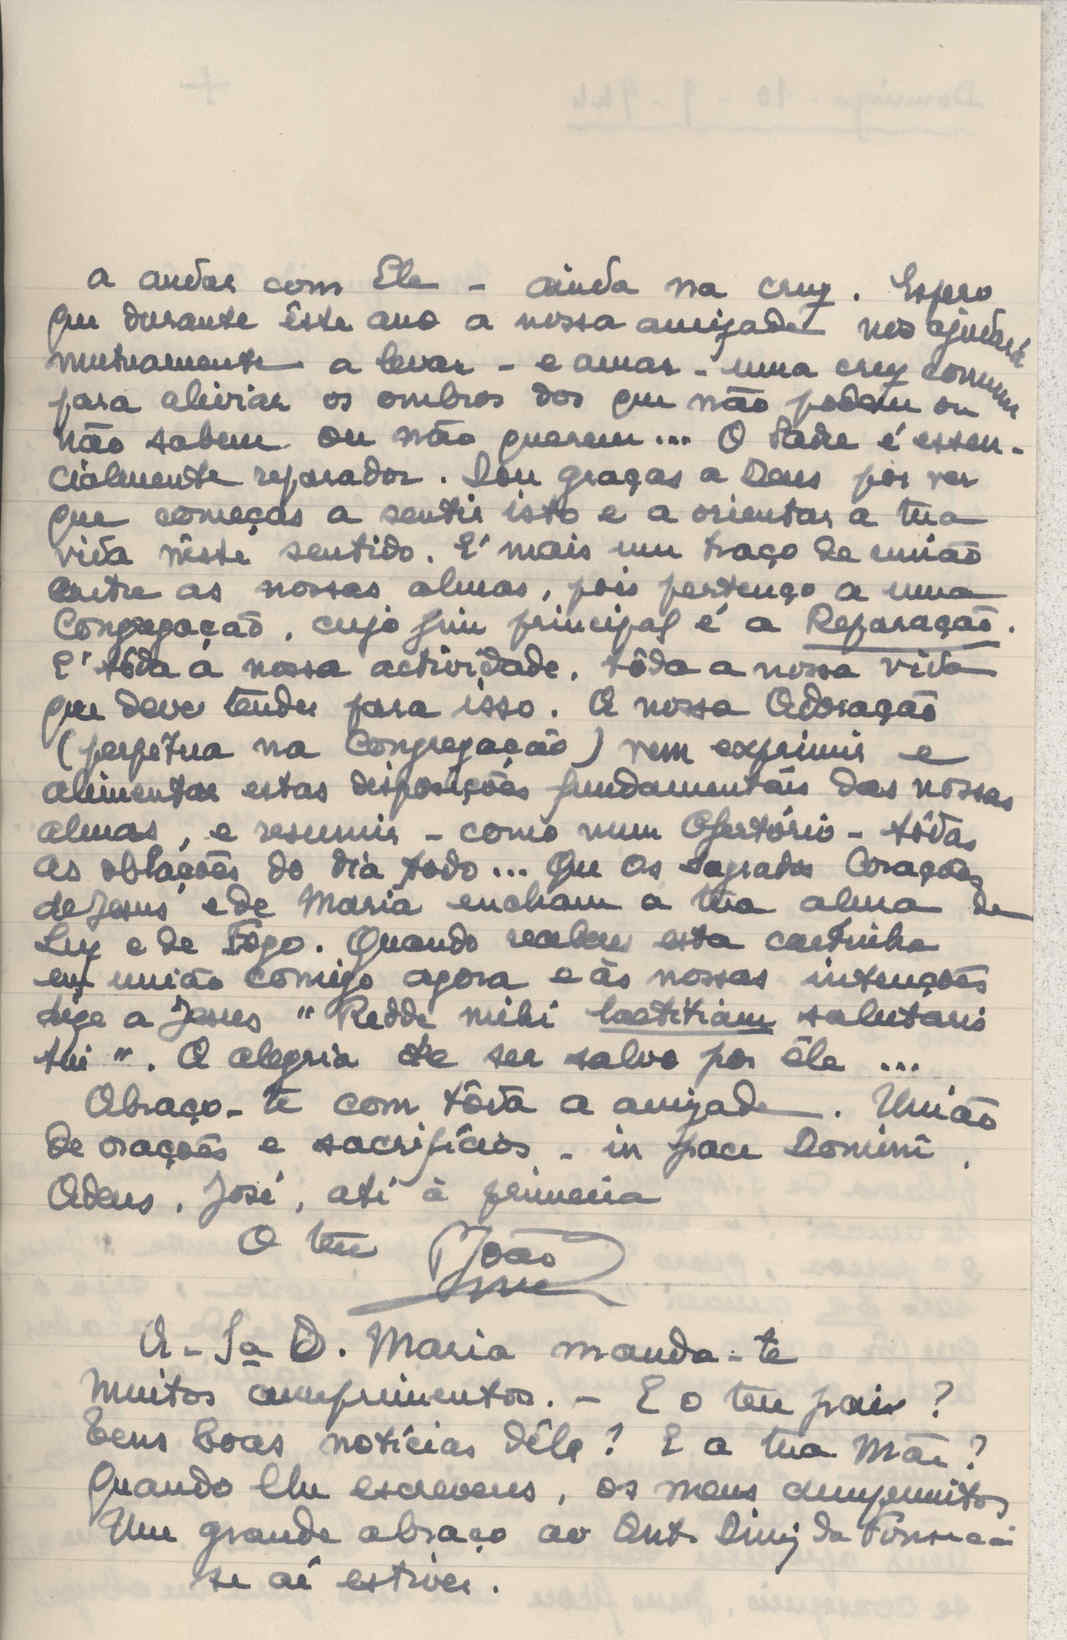 a andar com Ele - ainda na cruz. Espero
que durante êste ano a nossa amizade nos ajudará
mutuamente a levar - e amar - uma cruz comum
para aliviar os ombros dos que não podem ou
não sabem ou não querem... O Padre é essen-
cialmente reparador. Dou graças a Deus por ver
que começas a sentir isto e a orientar a tua
vida nêste sentido. É mais um traço de união
entre as nossas almas, pois pertenço a uma
Congregação, cujo fim principal é a Reparação.
E' tôda a nossa actividade, tôda a nossa vida
que deve tender para isso. A nossa Adoração
(perpétua na Congregação) vem exprimir e
alimentar estas disposições fundamentais das nossas
almas, e resumir - como num Ofertório - tôdas
as oblações do dia todo... Que os Sagrados Corações
de Jesus e de Maria encham a tua alma de
Luz e de Fogo. Quando receberes esta cartinha
em união comigo agora e às nossas intenções
dize a Jesus "Redde mihi laetitiam salutaris
tui". A alegria de ser salvo por êle ...
Abraço-te com tôda a amizade. União
de orações e sacrifícios - in pace Domini.
Adeus, José, até à primeira
O teu João
A Sª D. Maria manda-te
muitos cumprimentos. - E o teu pai?
Tens boas notícias dêle? E a tua Mãe?
Quando lhe escreveres, os meus cumprimentos
Um grande abraço ao Ant. Diniz da Fonseca
se aí estiver.